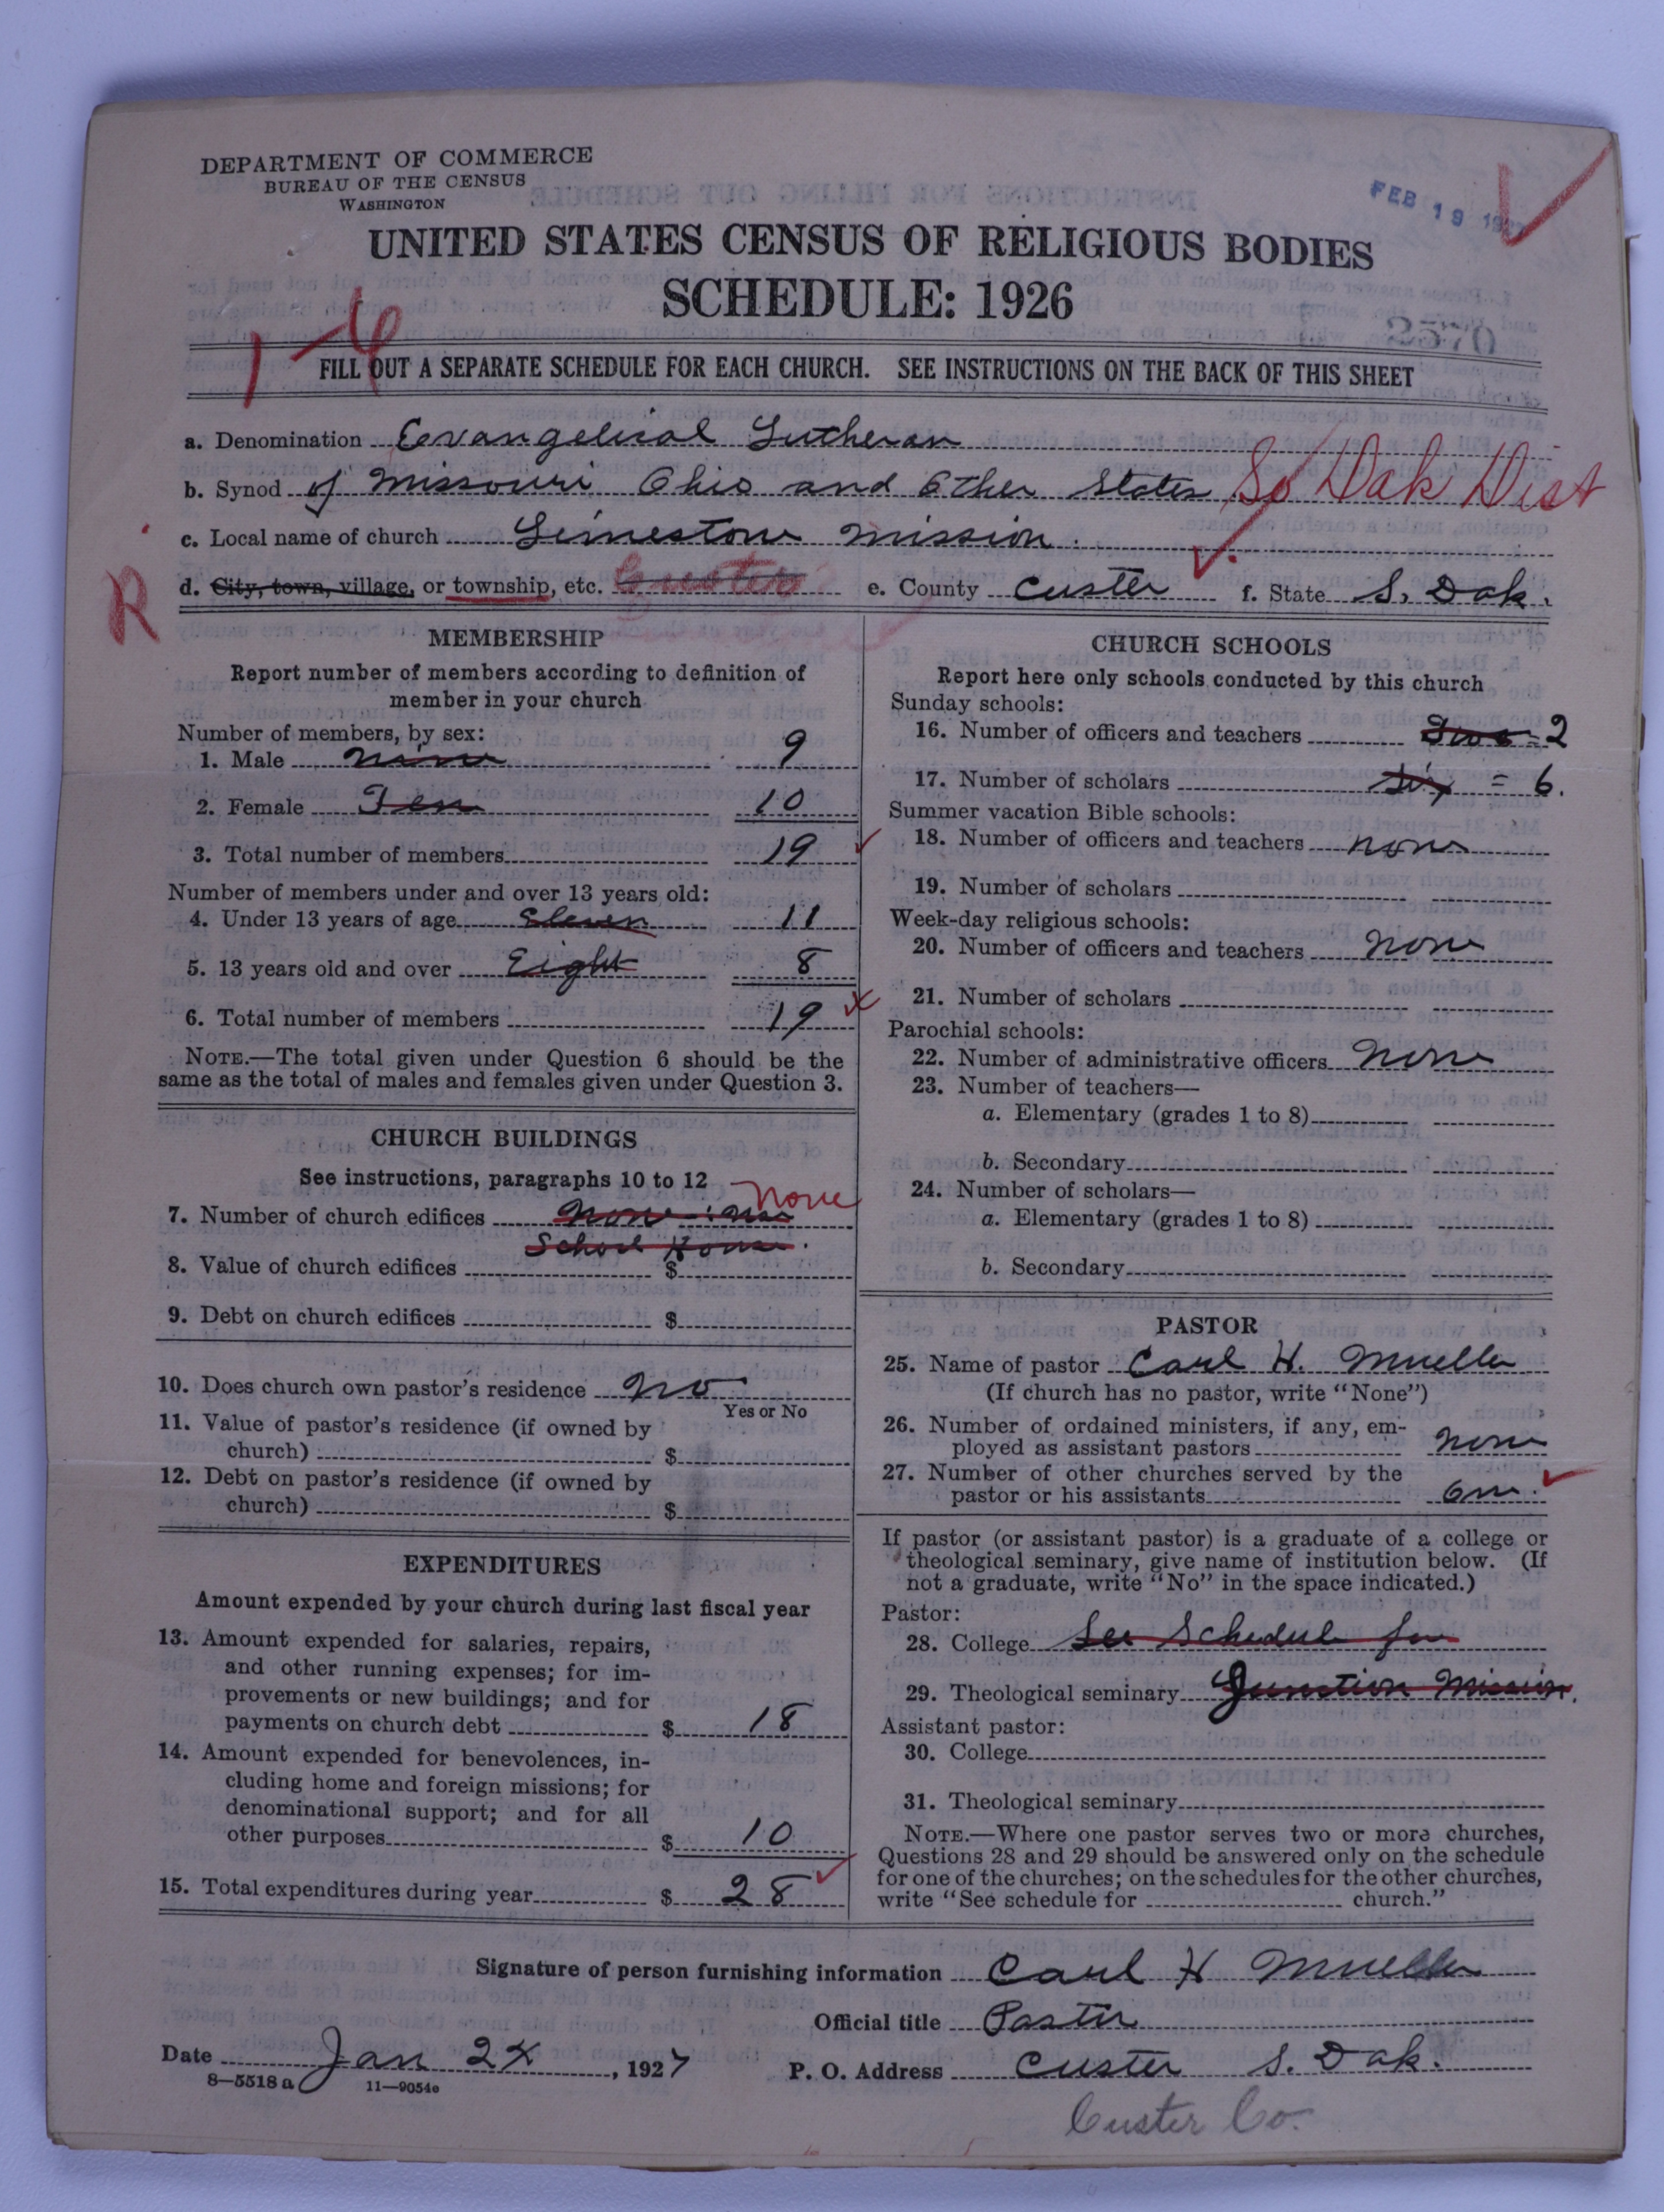 DEPARTMENT OF COMMERCE
BUREAU OF THE CENSUS
WASHINGTON
FEB 19 1927
UNITED STATES CENSUS OF RELIGIOUS BODIES
SCHEDULE: 1926
FILL OUT A SEPARATE SCHEDULE FOR EACH CHURCH. SEE INSTRUCTIONS ON THE BACK OF THIS SHEET
a. Denomination Evangelical Lutheran
b. Synod of Missouri Ohio and Other States So Dak Dist
c. Local name of church Limestone Mission.
R d. City, town, village, or township, etc. Custer e. County Custer f. State S. Dak.
MEMBERSHIP
Report number of members according to definition of
member in your church
Number of members, by sex:
1. Male Nine 9
2. Female Ten 10
3. Total number of members 19
Number of members under and over 13 years old:
4. Under 13 years of age Eleven 11
5. 13 years old and over Eight 8
6. Total number of members 19
NOTE.—The total given under Question 6 should be the
same as the total of males and females given under Question 3.
CHURCH BUILDINGS
See instructions, paragraphs 10 to 12
none
7. Number of church edifices None: use
School House.
8. Value of church edifices $
9. Debt on church edifices $
10. Does church own pastor's residence No
Yes or No
11. Value of pastor's residence (if owned by
church) $
12. Debt on pastor's residence (if owned by
church) $
EXPENDITURES
Amount expended by your church during last fiscal year
13. Amount expended for salaries, repairs,
and other running expenses; for im-
provements or new buildings; and for
payments on church debt $ 18
14. Amount expended for benevolences, in-
cluding home and foreign missions; for
denominational support; and for all
other purposes $ 10
15. Total expenditures during year $ 28
CHURCH SCHOOLS
Report here only schools conducted by this church
Sunday schools:
16. Number of officers and teachers Two = 2
17. Number of scholars Six = 6.
Summer vacation Bible schools:
18. Number of officers and teachers None
19. Number of scholars
Week-day religious schools:
20. Number of officers and teachers None
21. Number of scholars
Parochial schools:
22. Number of administrative officers None
23. Number of teachers—
a. Elementary (grades 1 to 8)
b. Secondary
24. Number of scholars—
a. Elementary (grades 1 to 8)
b. Secondary
PASTOR
25. Name of pastor Carl H. Mueller
(If church has no pastor, write "None")
26. Number of ordained ministers, if any, em-
ployed as assistant pastors None
27. Number of other churches served by the
pastor or his assistants One.
If pastor (or assistant pastor) is a graduate of a college or
theological seminary, give name of institution below. (If
not a graduate, write "No" in the space indicated.)
Pastor:
28. College See Schedule for
29. Theological seminary Junction Mission.
Assistant pastor:
30. College
31. Theological seminary
NOTE.—Where one pastor serves two or more churches,
Questions 28 and 29 should be answered only on the schedule
for one of the churches; on the schedules for the other churches,
write "See schedule for church."
Signature of person furnishing information Carl H Mueller
Official title Pastor
Date Jan 24, 1927 P. O. Address Custer S. Dak.
8—5518 a 11—9054e
Custer Co.